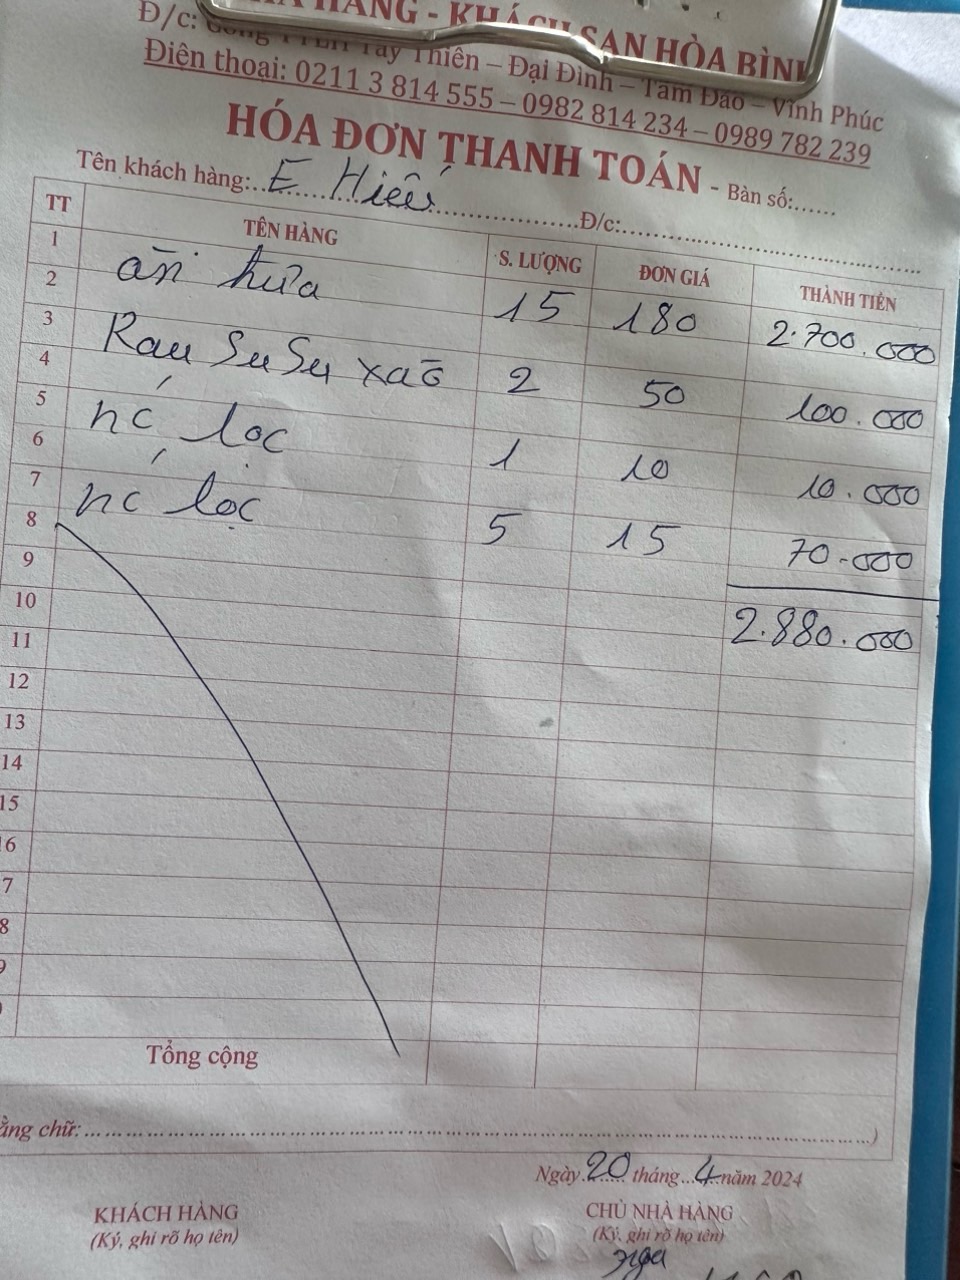 HÀNG - KHÁCH SẠN HÒA BÌNH
Đ/c: Cổng Tây Thiên – Đại Đình – Tam Đảo – Vĩnh Phúc
Điện thoại: 0211 3 814 555 – 0982 814 234 – 0989 782 239
HÓA ĐƠN THANH TOÁN - Bàn số:......
Tên khách hàng: E Hiếu Đ/c:
TT TÊN HÀNG S. LƯỢNG ĐƠN GIÁ THÀNH TIỀN
1
2 ăn trưa 15 180 2.700.000
3
4 Rau Su Su xào 2 50 100.000
5
6 nć lọc 1 10 10.000
7
8 nć lọc 5 15 70.000
9
10 2.880.000
11
12
13
14
15
6
7
8
9
Tổng cộng
ằng chữ: )
Ngày 20 tháng 4 năm 2024
KHÁCH HÀNG CHỦ NHÀ HÀNG
(Ký, ghi rõ họ tên) (Ký, ghi rõ họ tên)
nga